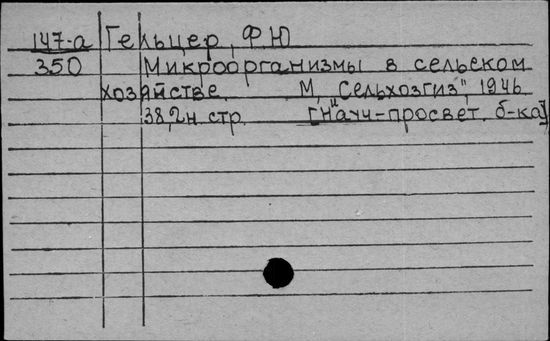 147-а Гельцер, Ф.Ю
350 Микроорганизмы в сельском
хозяйстве. М, "Сельхозгиз", 1946
38,2н. стр. [Науч-просвет. б-ка]